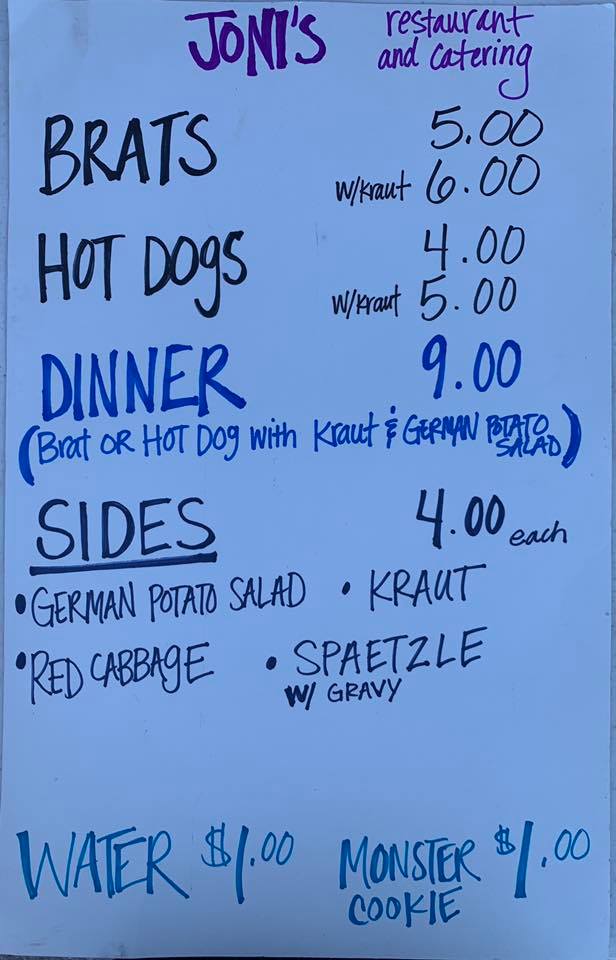 JONI'S restaurant
and catering
BRATS 5.00
w/kraut 6.00
HOT DOGS 4.00
w/kraut 5.00
DINNER 9.00
(Brat OR HOT DOG with Kraut & GERMAN POTATO
SALAD)
SIDES 4.00 each
• GERMAN POTATO SALAD • KRAUT
• RED CABBAGE • SPAETZLE
W/ GRAVY
WATER $1.00 MONSTER $1.00
COOKIE